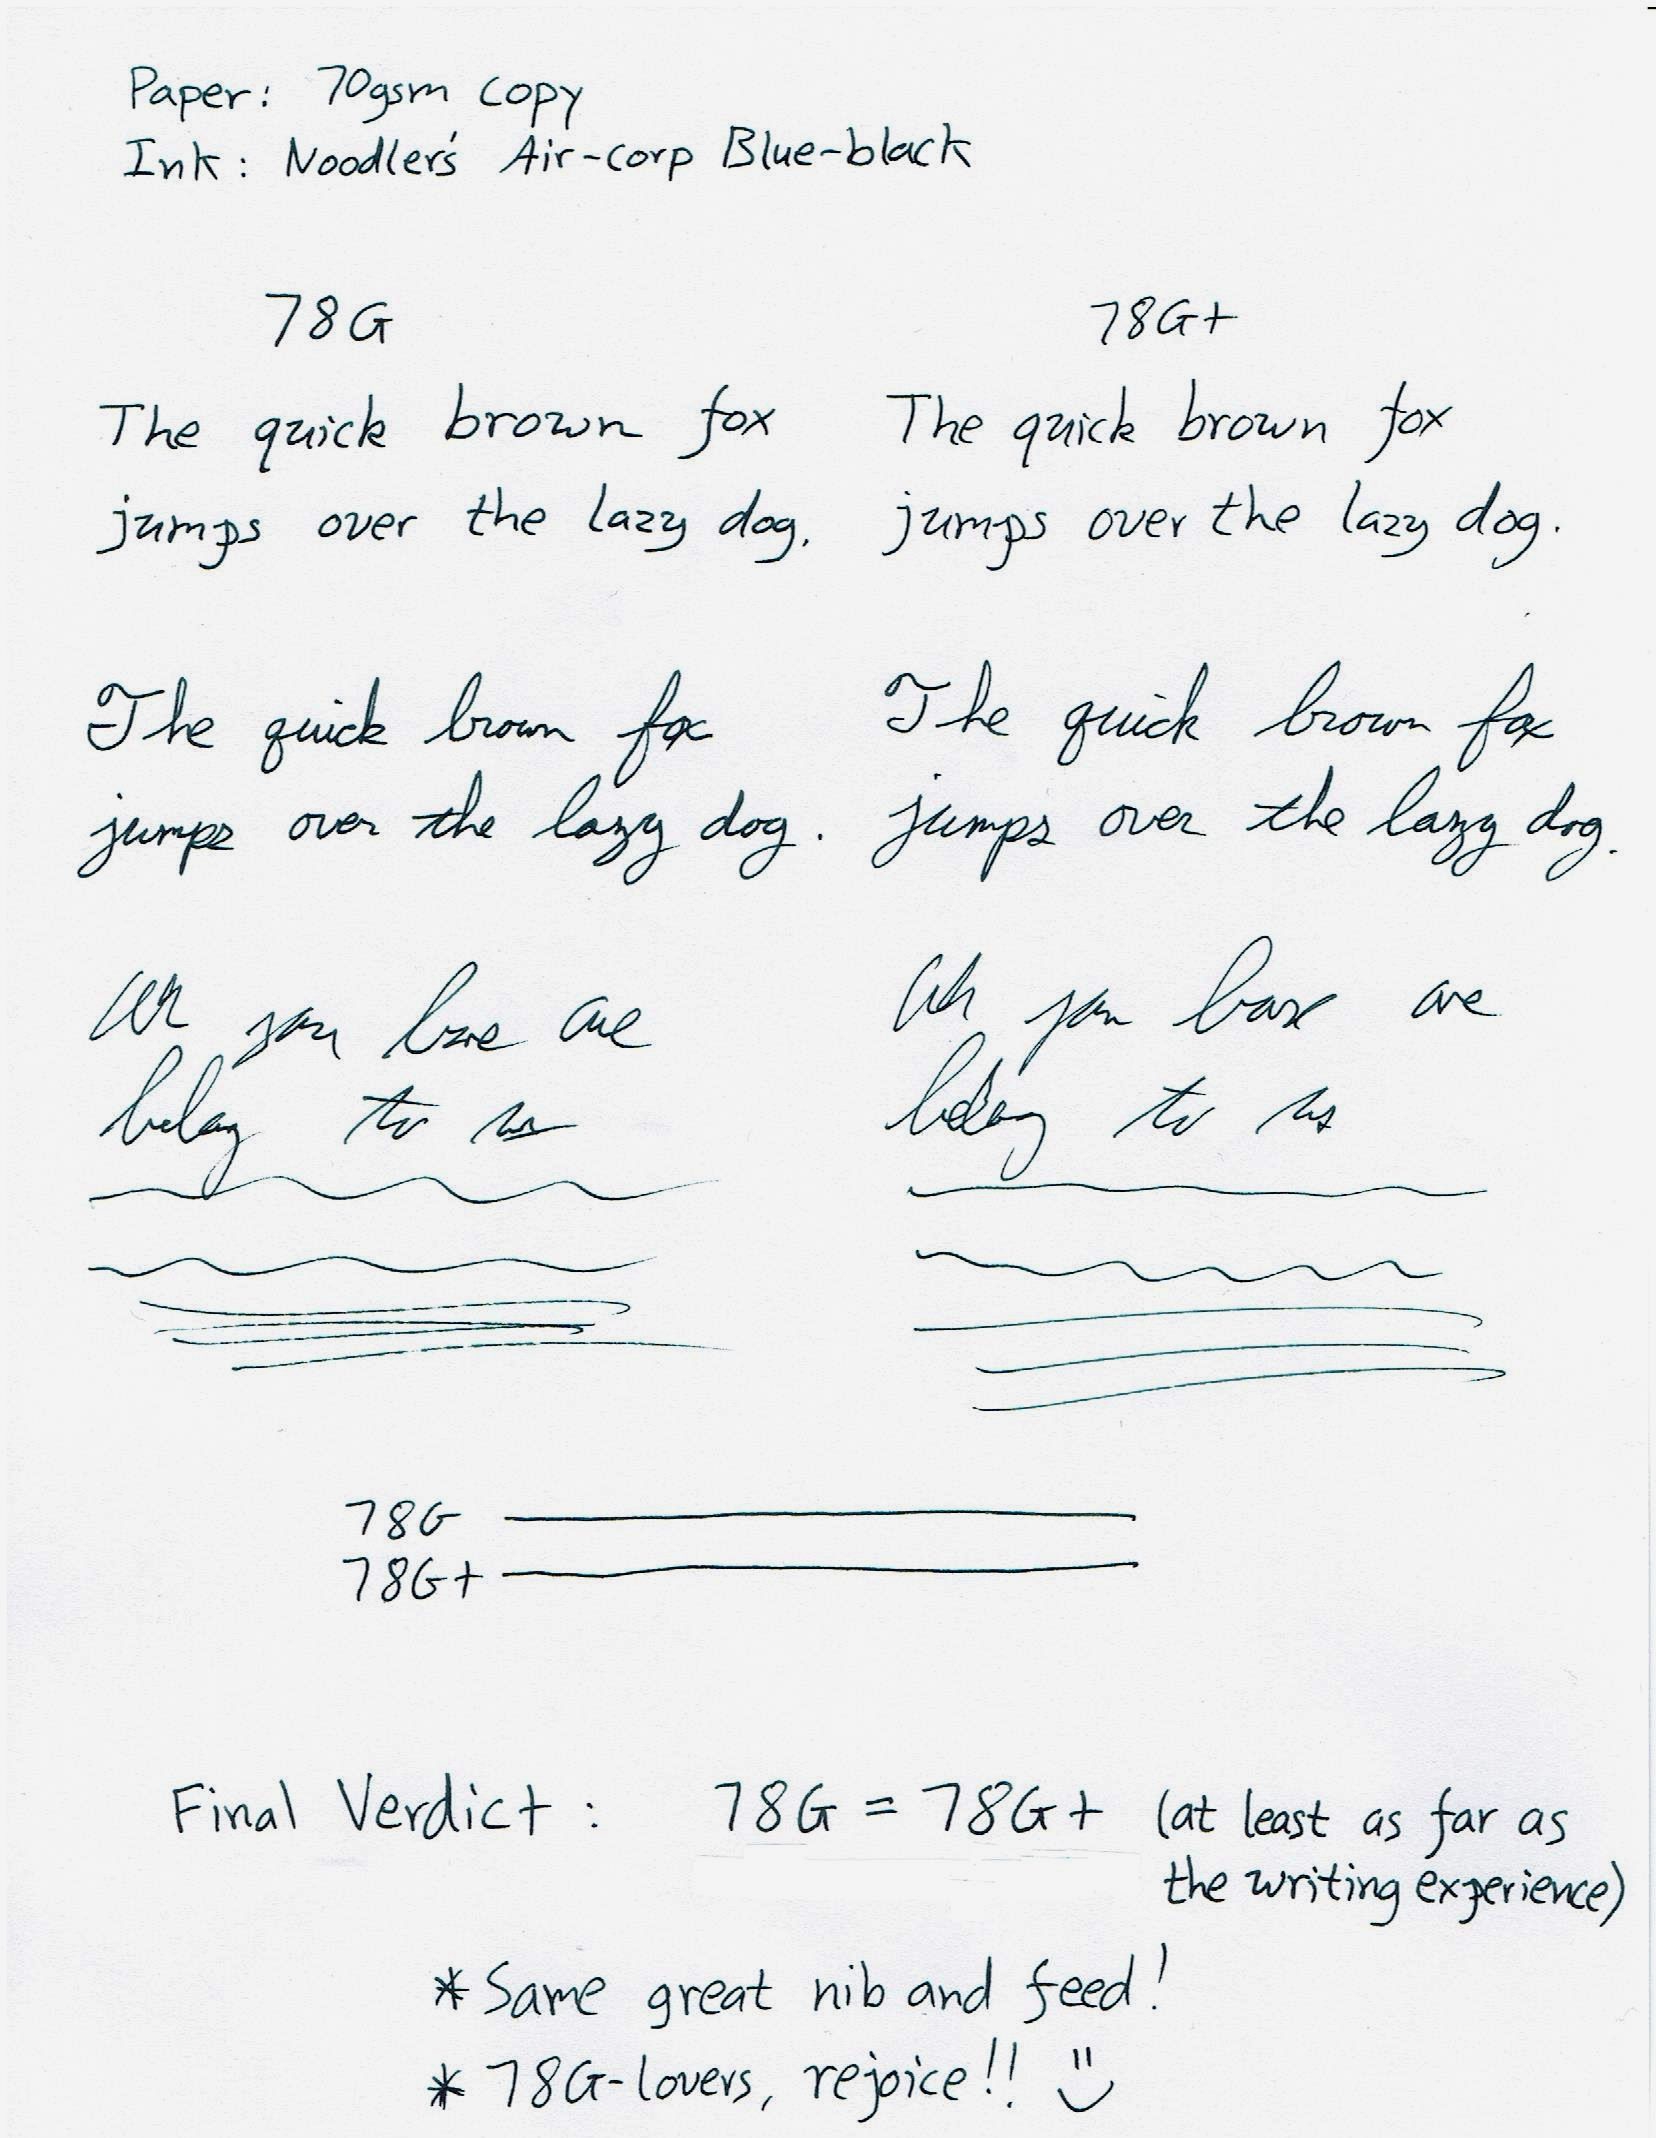 Paper: 70gsm copy
Ink: Noodler's Air-corp Blue-black
78G
The quick brown fox
jumps over the lazy dog.
The quick brown fox
jumps over the lazy dog.
All you base are
belong to us
78G+
The quick brown fox
jumps over the lazy dog.
The quick brown fox
jumps over the lazy dog.
All you base are
belong to us
78G
78G+
Final Verdict: 78G = 78G+ (at least as far as
the writing experience)
* Same great nib and feed!
* 78G-lovers, rejoice!!